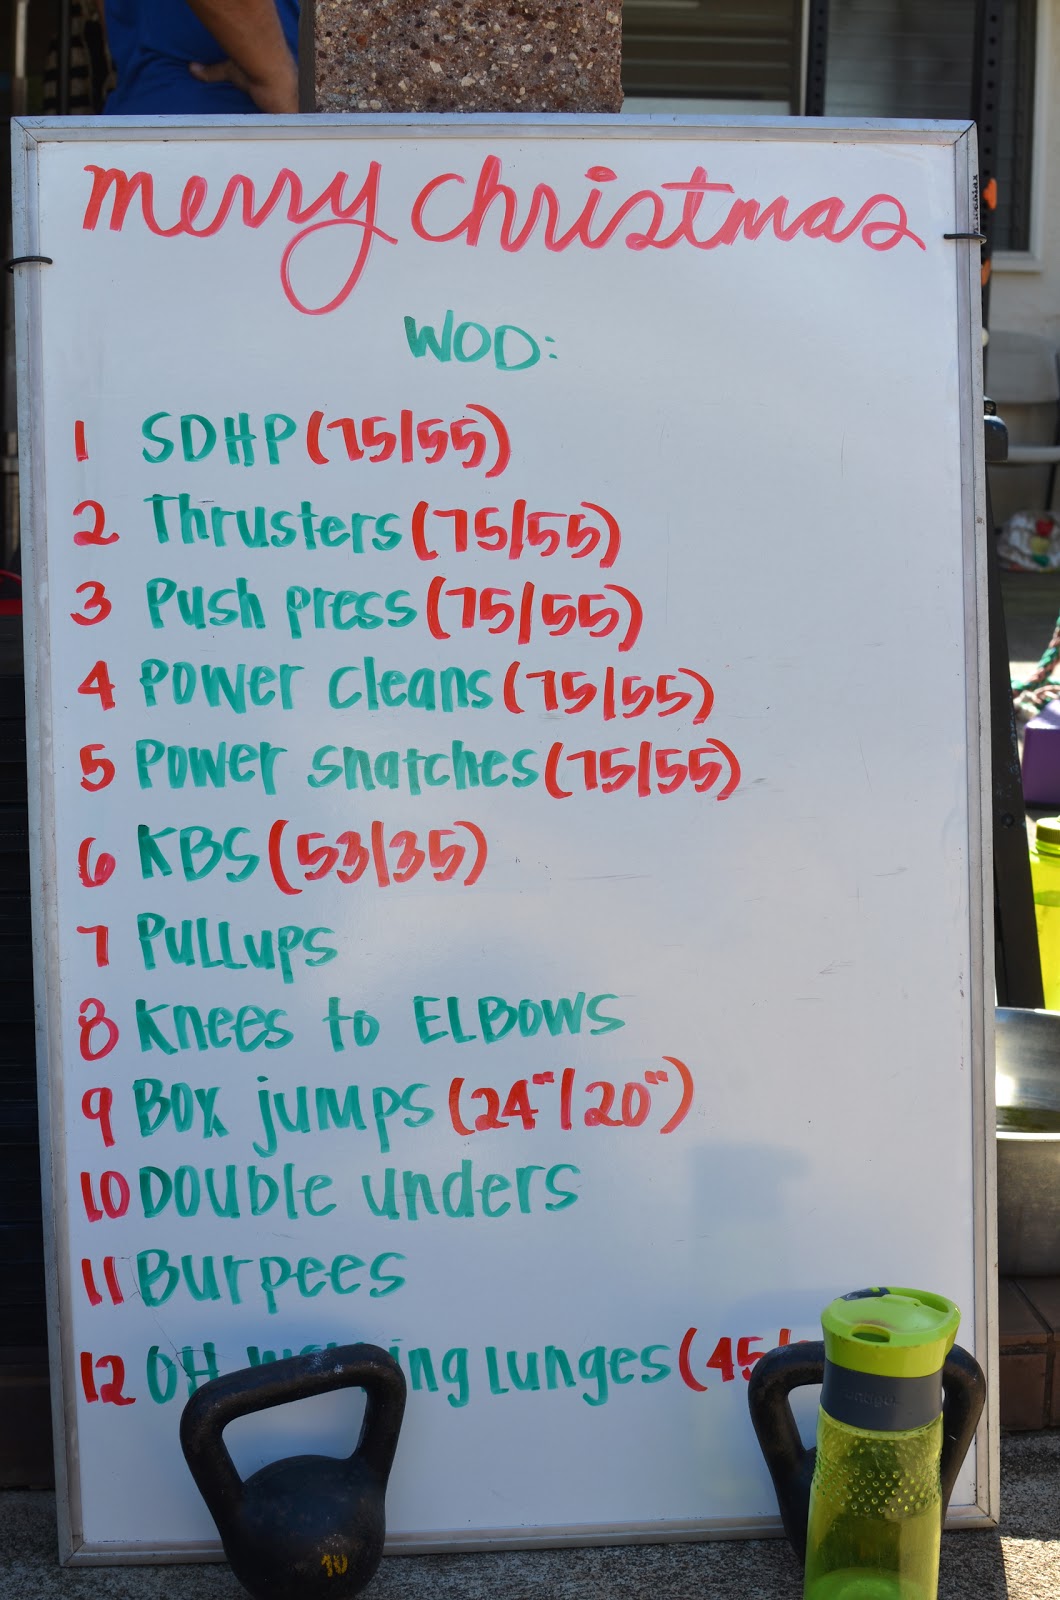 merry christmas
WOD:
1 SDHP (75/55)
2 Thrusters (75/55)
3 Push press (75/55)
4 Power cleans (75/55)
5 Power snatches (75/55)
6 KBS (53/35)
7 PULLUPS
8 Knees to ELBOWS
9 BOX jumps (24"/20")
10 DOUble unders
11 Burpees
12 OH lunges (45/
10